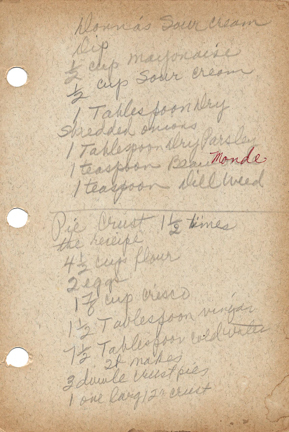 Donna's Sour Cream
Dip
1/2 cup mayonaise
1/2 cup Sour cream
1 Tablespoon Dry
Shedded onions
1 Tablespoon Dry Parsley
1 teaspoon Beau Monde
1 teaspoon Dill Weed
Pie Crust 1 1/2 times
the recipe
4 1/2 cup flour
2 eggs
cup crisco
1 1/2 Tablespoon vinegar
7 1/2 Tablespoon cold water
It makes
3 double crust pies
1 one larg crust